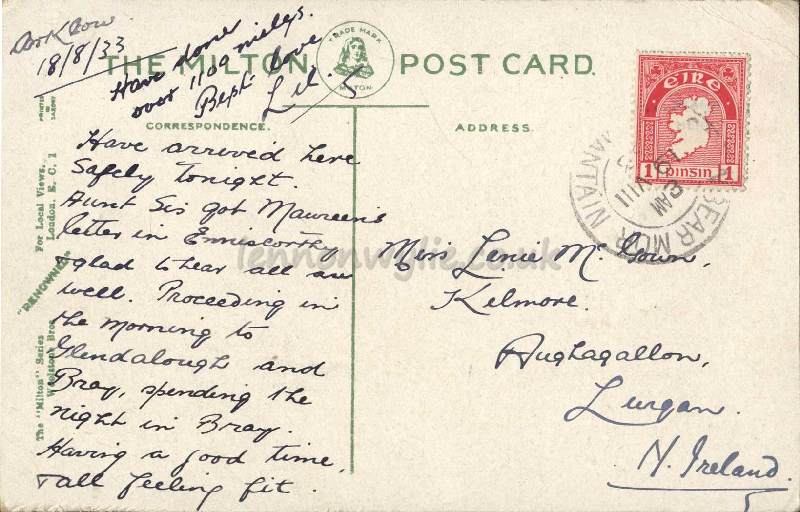 18/8/33
Have done
over 1100 miles.
Best love
Lil.
THE MILTON POST CARD.
TRADE MARK
MILTON
CORRESPONDENCE.
ADDRESS.
Have arrived here
Safely tonight.
Aunt Sis got Maureen's
letter in Enniscorthy
& glad to hear all are
well. Proceeding in
the morning to
Glendalough and
Bray, spending the
night in Bray.
Having a good time,
& all feeling fit.
Miss Lenie Mc Gown,
Kilmore.
Aughagallon,
Lurgan.
N. Ireland.
EIRE
1 PINSIN 1
VIII
AM
lennonwylie.co.uk
PRINTED
IN
SAXONY
For Local Views.
London. E. C. 1
"RENOWNED"
The "Milton" Series
Woolstone Bros